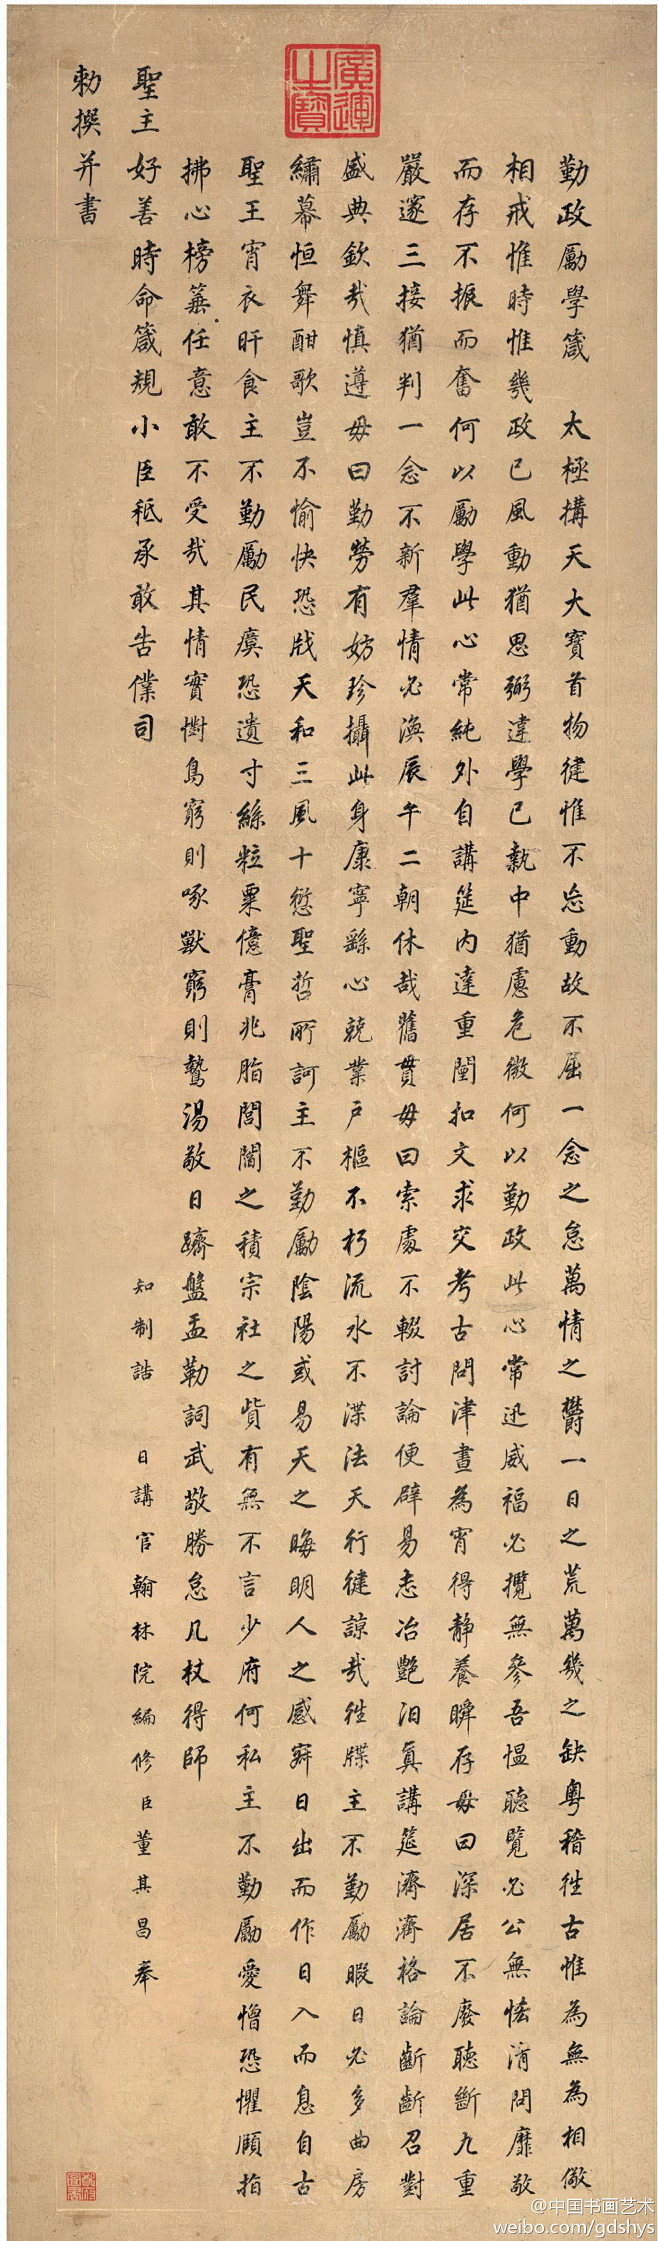 廣運之寶
勤政勵學箴 太極搆天大寶首物健惟不忘動故不屈一念之怠萬情之欝一日之荒萬幾之缺粵稽往古惟為無為相儆
相戒惟時惟幾政已風動猶思弼違學已執中猶慮危微何以勤政此心常迅威福必攬無參吾愠聽覽必公無恡清問靡敢
而存不振而奮何以勵學此心常純外自講筵內達重闈扣文求交考古問津晝為宵得靜養瞬存毋曰深居不廢聽斷九重
嚴邃三接猶判一念不新羣情必渙辰午二朝休哉舊貫毋曰索處不輟討論便辟易志冶艷汩真講筵濟濟袼論齗齗召對
盛典欽哉慎遵毋曰勤勞有妨珍攝此身康寧繇心兢業戶樞不朽流水不渫法天行健諒哉往牒主不勤勵暇日必多曲房
繡幕恒舞酣歌豈不愉快恐戕天和三風十愆聖哲所訶主不勤勵陰陽或易天之晦明人之感寤日出而作日入而息自古
聖王宵衣旰食主不勤勵民瘼恐遺寸絲粒粟億膏兆脂閭閻之積宗社之貲有無不言少府何私主不勤勵愛憎恐懼頤指
拂心榜箠任意敢不受哉其情實懟鳥窮則啄獸窮則鷙湯敬日躋盤盂勒詞武敬勝怠几杖得師
聖主好善時命箴規小臣秪承敢告僕司 知制誥 日講官翰林院編修臣董其昌奉
勅撰并書
@中国书画艺术
weibo.com/gdshys